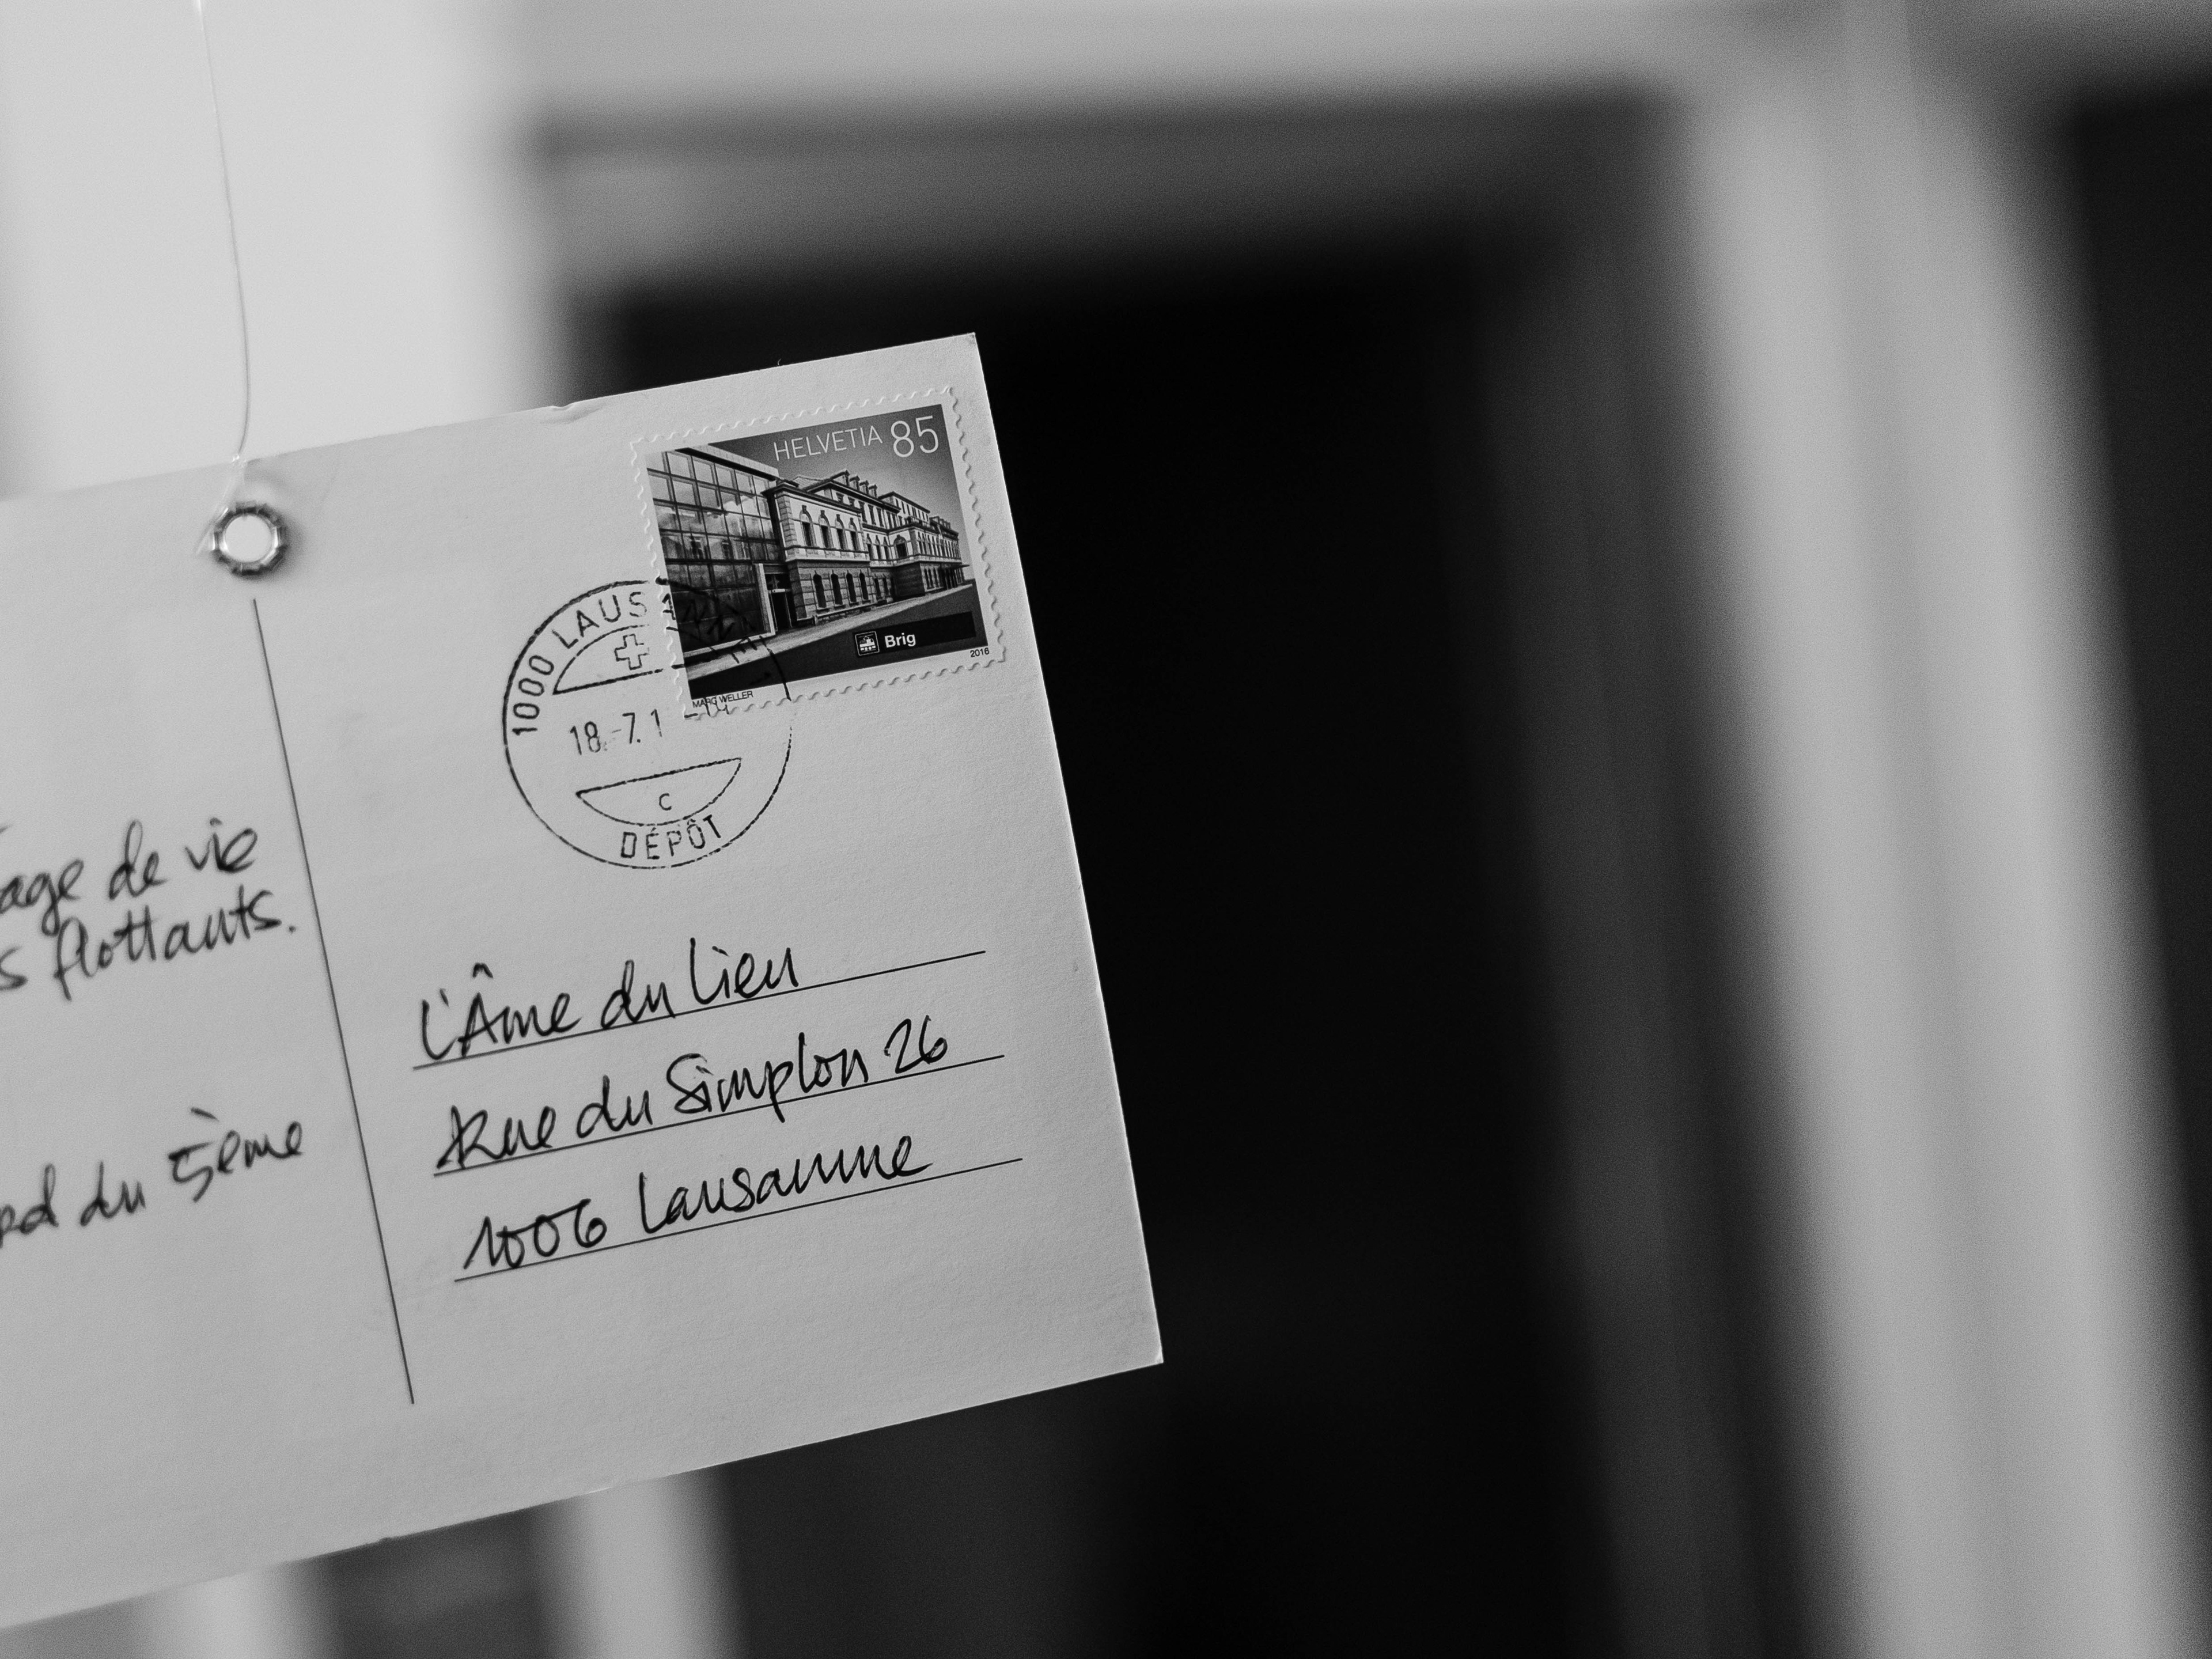 HELVETIA 85
Brig
2016
MARC WELLER
1000 LAUS
18.-7.1
C
DÉPÔT
age de vie
s flottants.
ed du 5ème
L'Âme du Lieu
Rue du Simplon 26
1006 Lausanne